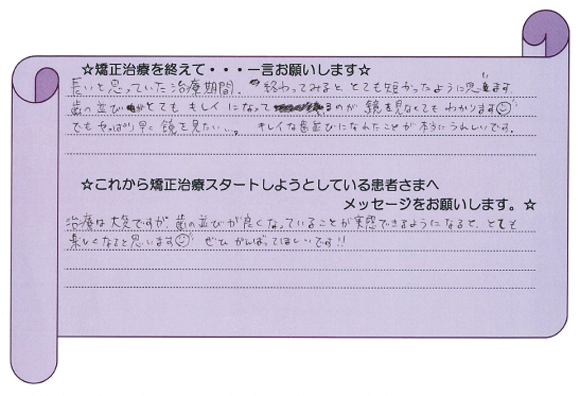 ☆矯正治療を終えて・・・一言お願いします☆
長いと思っていた治療期間。終わってみると、とても短かったように思います。
歯の並びがとてもキレイになって るのが鏡を見なくてもわかります
でもやっぱり早く鏡を見たい…。キレイな歯並びになれたことが本当にうれしいです。
☆これから矯正治療スタートしようとしている患者さまへ
メッセージをお願いします。☆
治療は大変ですが、歯の並びが良くなっていることが実感できるようになると、とても
楽しくなると思います ぜひがんばってほしいです!!